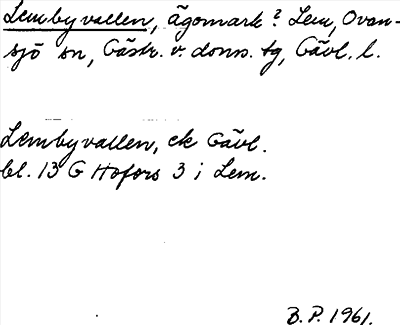 Lembyvallen, ägomark? Lem, Ovan-
sjö sn, Gästr. v. doms. tg, Gävl. l.
Lembyvallen, ek Gävl.
bl. 13 G Hofors 3 i Lem.
B.P. 1961.